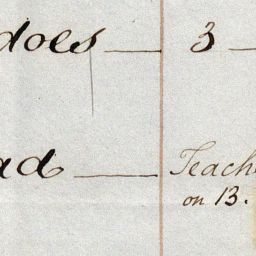 does — 3 —
ad — Teach
on 13.